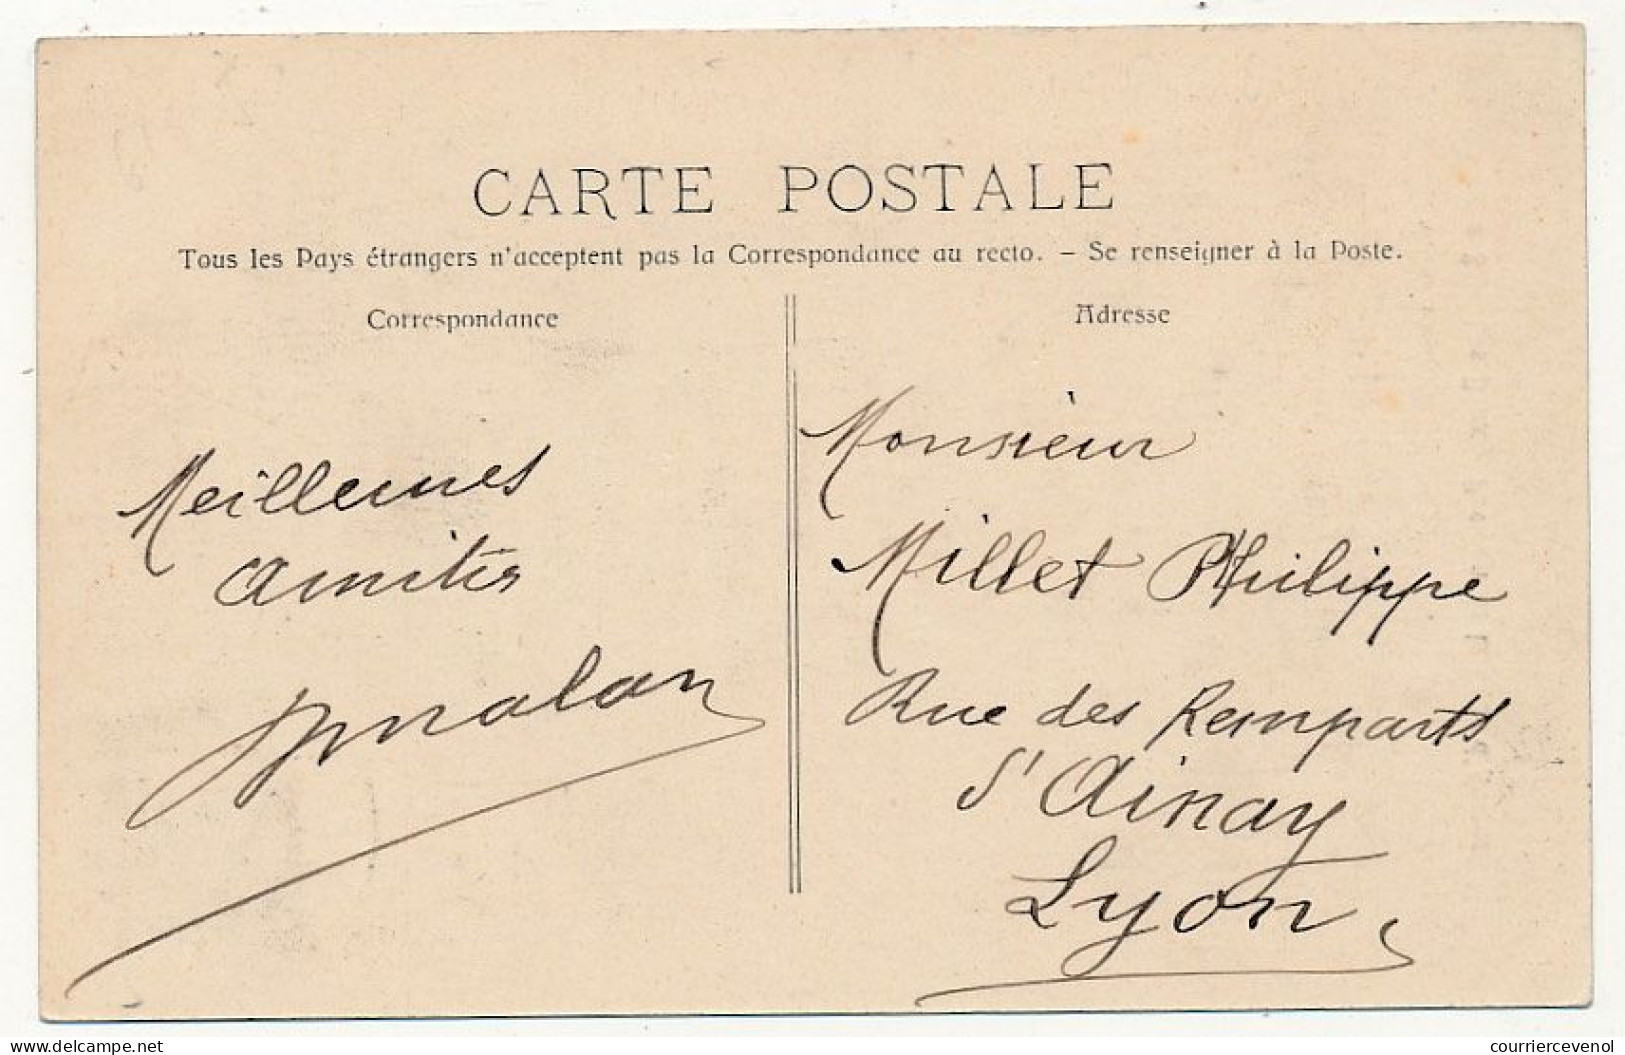 CARTE POSTALE
Tous les Pays étrangers n'acceptent pas la Correspondance au recto. – Se renseigner à la Poste.
Correspondance
Meilleures
amitiés
Adresse
Monsieur
Millet Philippe
Rue des Remparts
d'Ainay
Lyon
© delcampe.net
courriercevenol